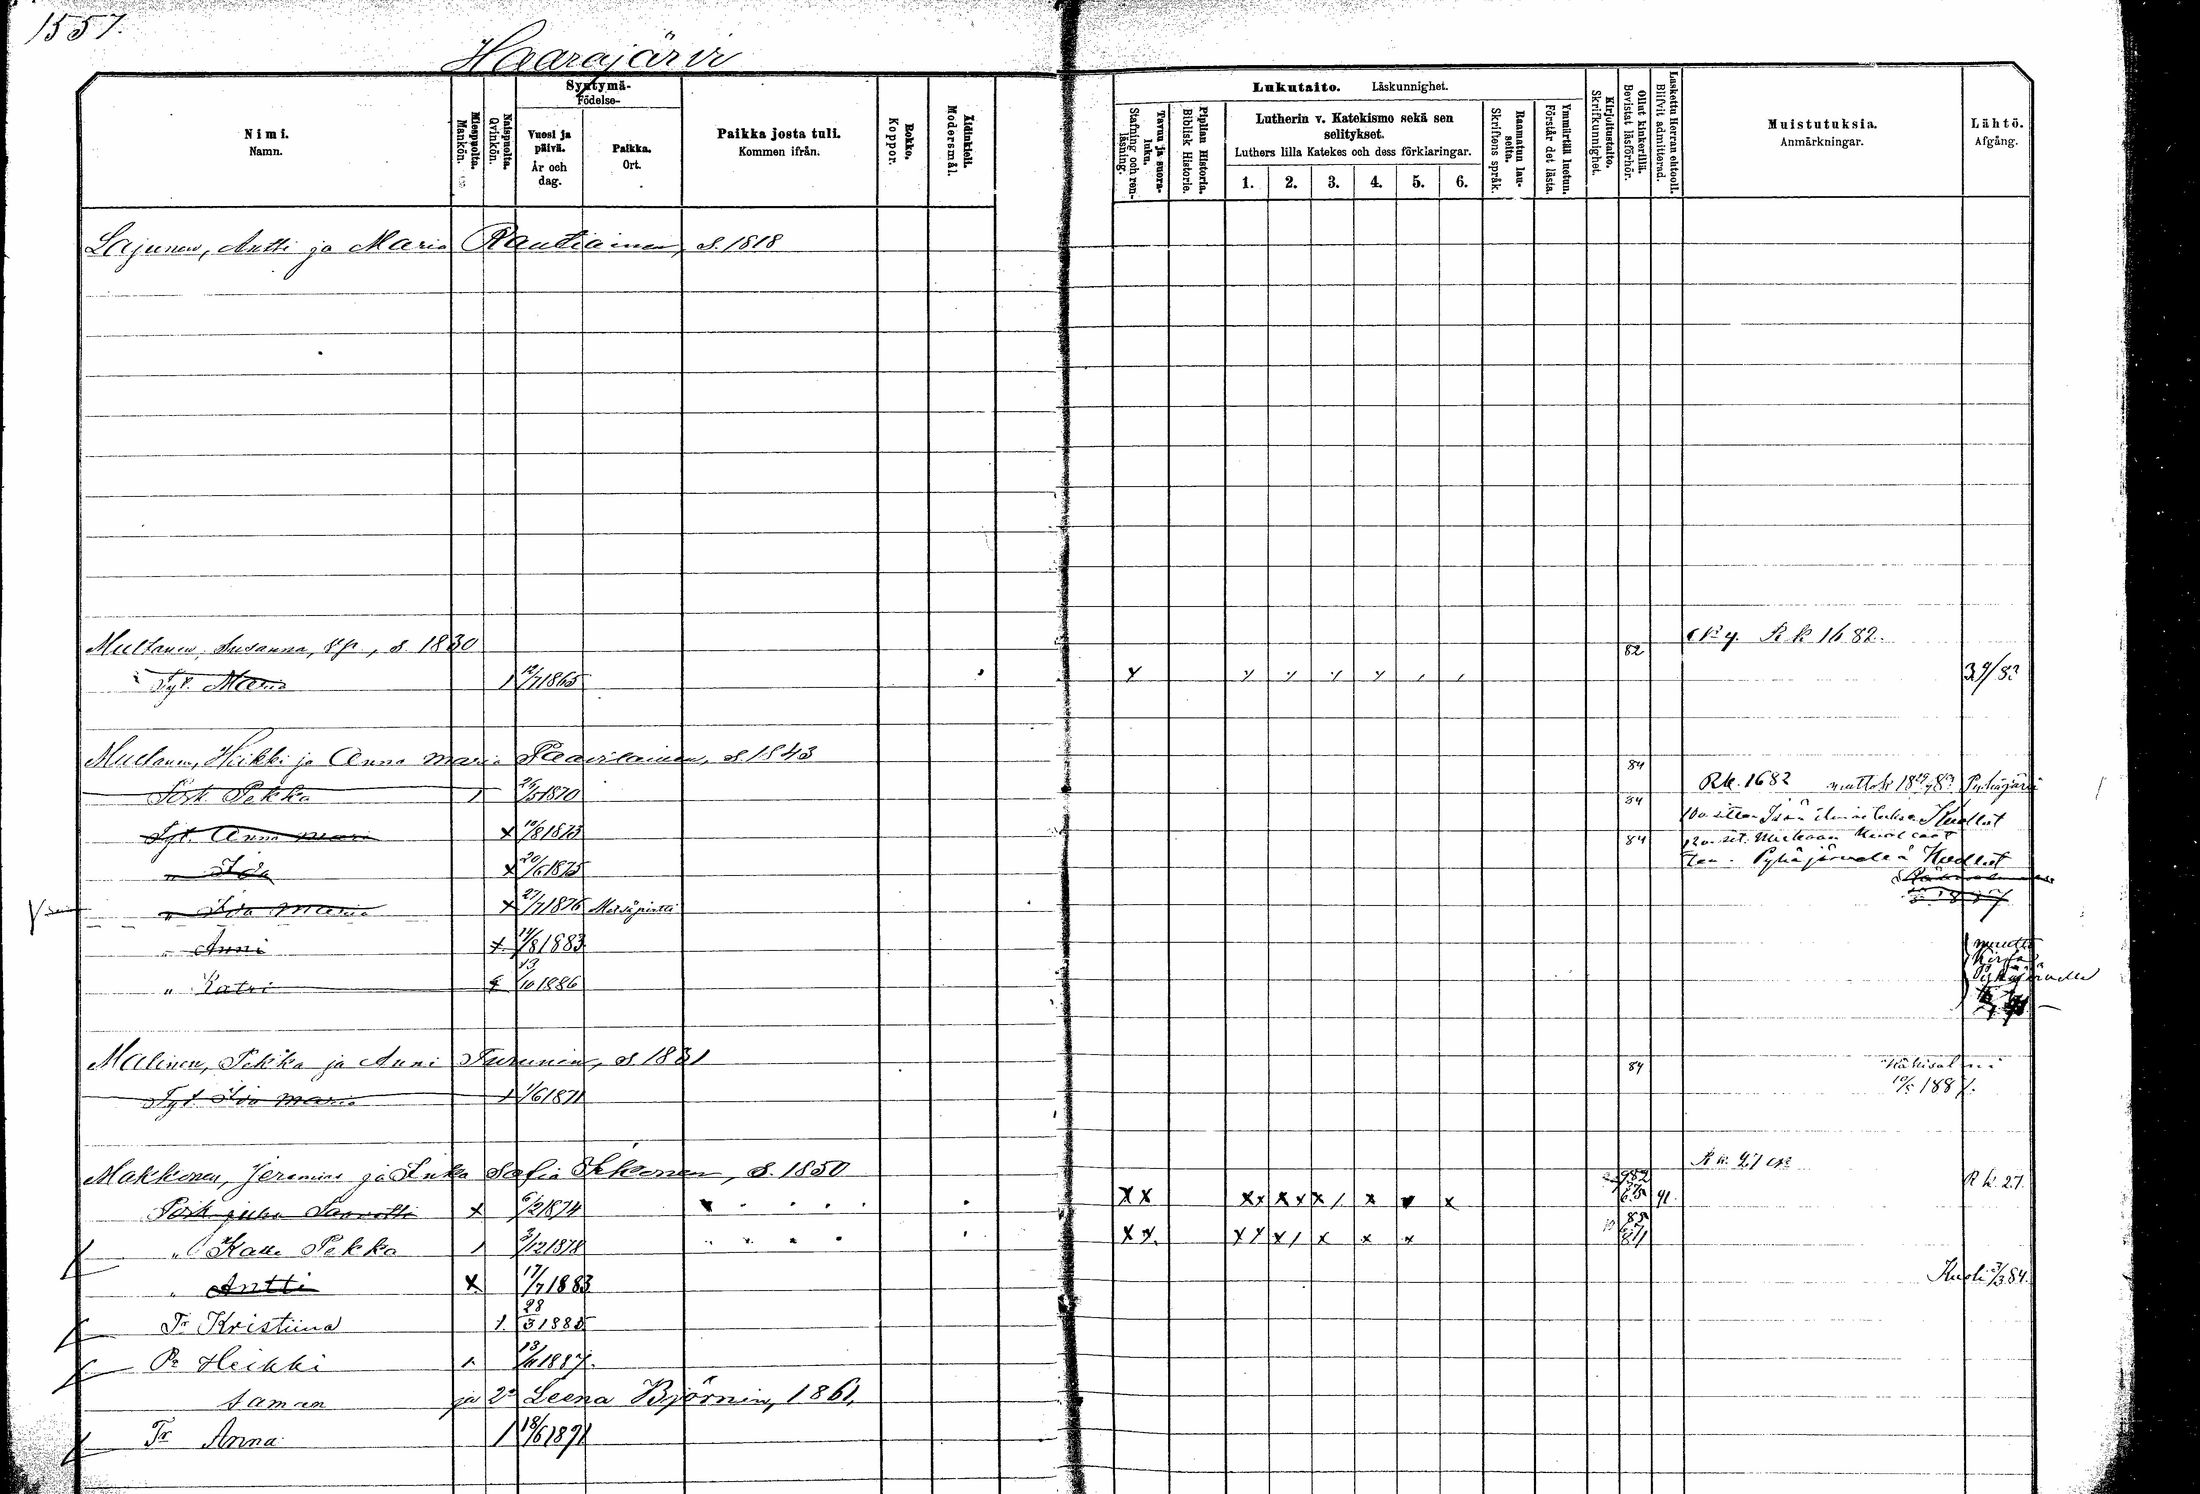 1557.
Haarajärvi
Nimi.
Namn.
Miespuolta.
Mankön.
Naispuolta.
Qvinkön.
Syntymä-
Födelse-
Vuosi ja päivä.
År och dag.
Paikka.
Ort.
Paikka josta tuli.
Kommen ifrån.
Rokko.
Koppor.
Äidinkieli.
Modersmål.
Lukutaito. Läskunnighet.
Tavuu ja suora-luku.
Stafning och ren-läsning.
Piplian Historia.
Biblisk Historie.
Lutherin v. Katekismo sekä sen selitykset.
Luthers lilla Katekes och dess förklaringar.
1. 2. 3. 4. 5. 6.
Raamatun lau-seita.
Skriftens språk.
Ymmärtää luetun.
Förstår det lästa.
Kirjoitustaito.
Skrifkunnighet.
Ollut kinkerillä.
Bevistat läsförhör.
Laskettu Herran ehtooll.
Blifvit admitterad.
Muistutuksia.
Anmärkningar.
Lähtö.
Afgång.
Lajunen, Antti ja Maria Rautiainen, s. 1818
Multanen, Susanna, s. 1830 82 Rk 1682.
Tyt. Maria 1 12/7 1865
Multanen, Heikki ja Anna Maria Paavilainen, s. 1843 84
Poik. Pekka 1 26/5 1870 84 Rk. 1682 Pyhäjärvi
Tyt. Anna Mari x 10/8 1873 84 Kuollut
" Ida x 20/6 1875 Pyhäjärvellä Kuollut
" Ida Maria x 27/7 1876 Metsäpirtti
" Anni x 14/8 1883
" Katri 13/10 1886
muutto
Kirja
Pyhäjärvelle
Malinen, Pekka ja Anni Turunen, s. 1831 84 Käkisalmi
Tyt Ida Maria 1 1/6 1871 1887.
Makkonen, Jeremias ja Inka Sofia Ikkonen, s. 1850 Rk. 27
Poik Juho x 6/2 1874 Rk 27.
" Kalle Pekka 1 3/12 1878
" Antti x 17/7 1883 Kuoli 3/3 84.
Tr Kristiina 1. 28/3 1885
Pr Heikki 1. 13/11 1887.
saman ja 2n Leena Björnin, 1861,
Tr Anna 1 18/6 1891